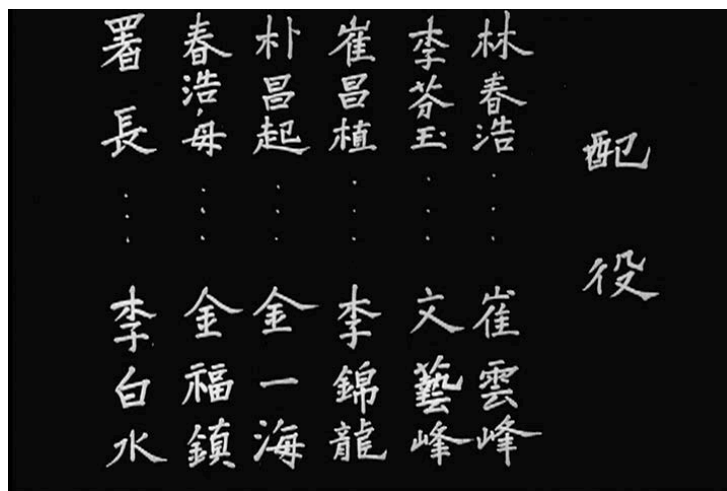 配役
林春浩...崔雲峰
李芬玉...文藝峰
崔昌植...李錦龍
朴昌起...金一海
春浩母...金福鎮
署長...李白水